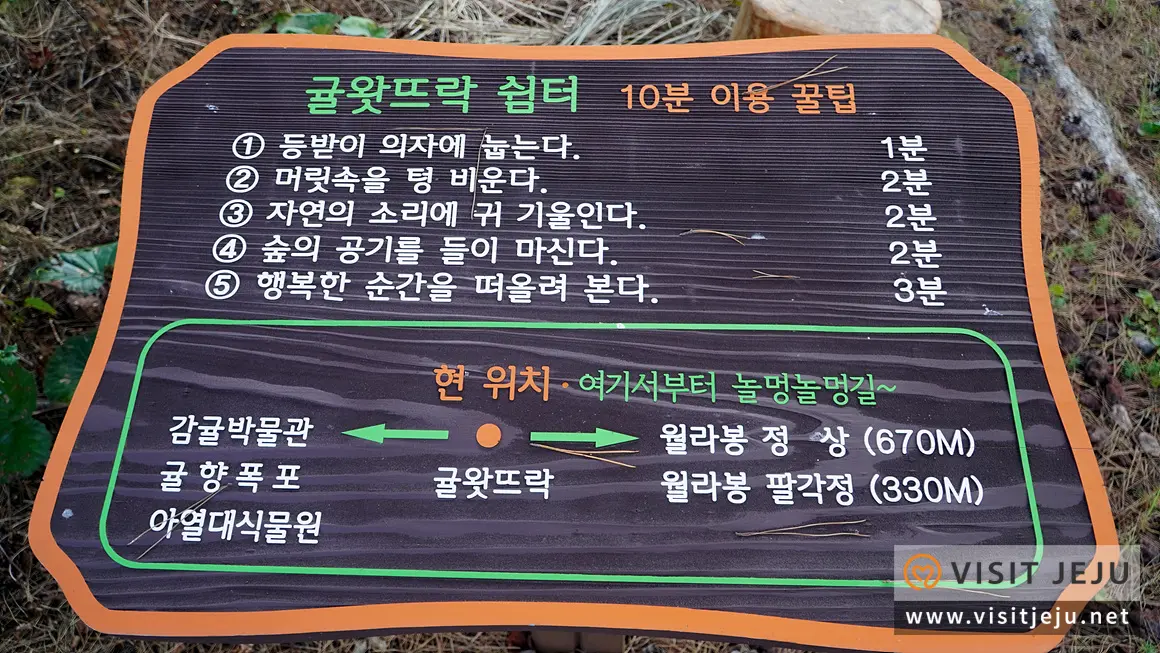 귤왓뜨락 쉼터 10분 이용 꿀팁
① 등받이 의자에 눕는다. 1분
② 머릿속을 텅 비운다. 2분
③ 자연의 소리에 귀 기울인다. 2분
④ 숲의 공기를 들이 마신다. 2분
⑤ 행복한 순간을 떠올려 본다. 3분
현 위치 · 여기서부터 놀멍놀멍길~
감귤박물관 월라봉 정 상 (670M)
귤향폭포 귤왓뜨락 월라봉 팔각정 (330M)
아열대식물원
VISIT JEJU
www.visitjeju.net